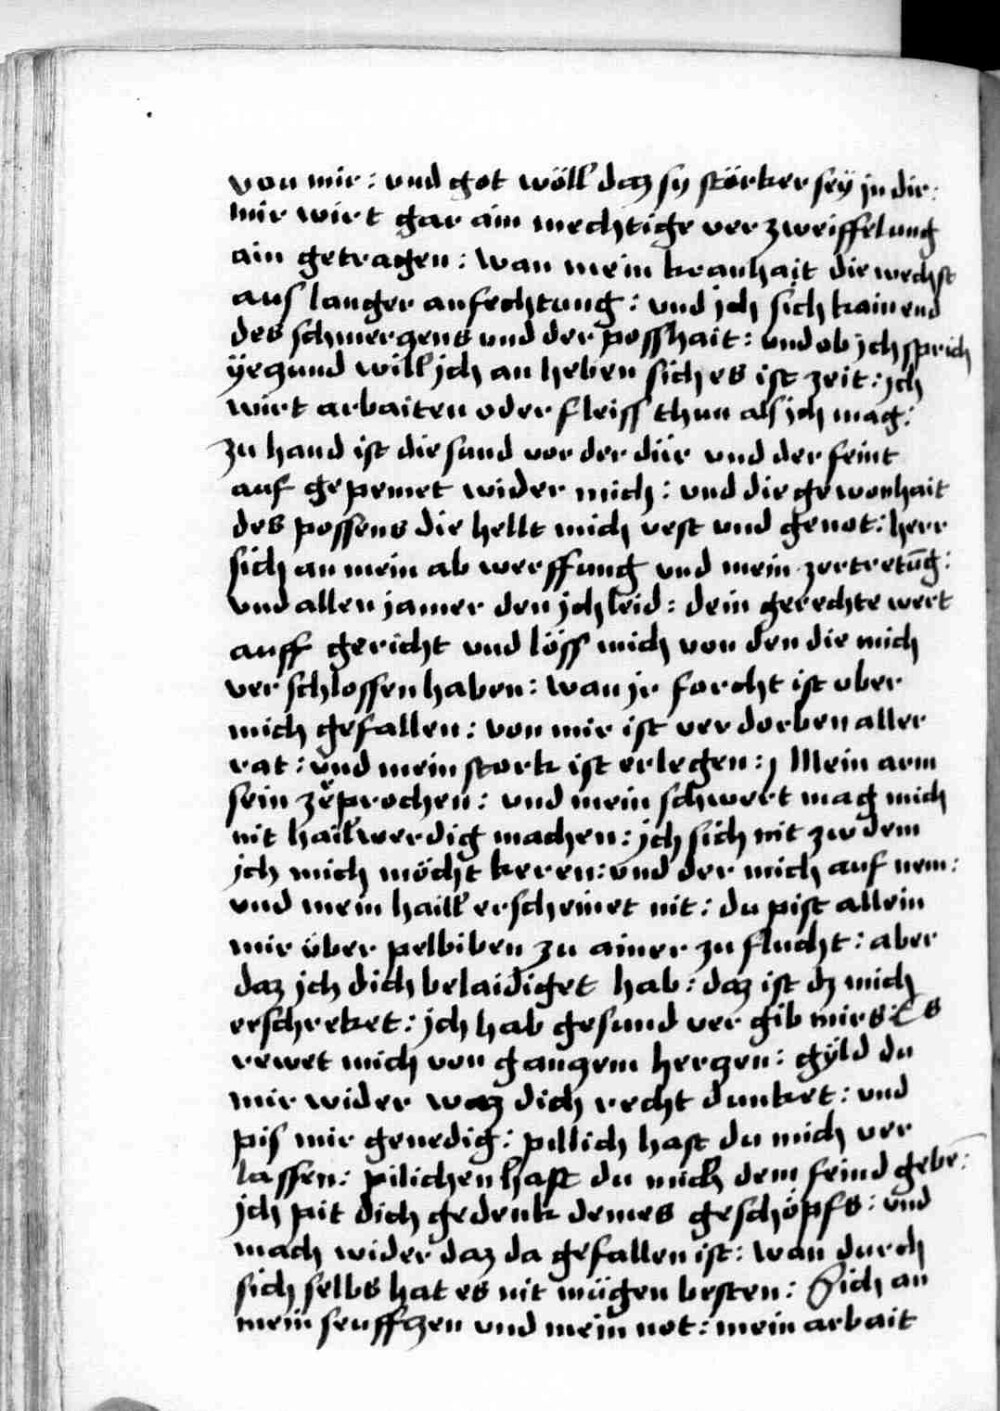 von mir : vnd got wöll daz sy störker seÿ jn dir :
mir wirt gar ain mechtige ver zweiffelung
ain getragen : wan mein kranhait die wechst
aus langer anfechtung : vnd jch sich kain end
des schmerzens vnd der posshait : vnd ob jch sprich
ÿezund will jch an heben sich es ist zeit : jch
wirt arbaiten oder fleiss thun als jch mag :
zu hand ist die sund vor der dür vnd der feint
auf gepemet wider mich : vnd die gewonhait
des possens die hellt mich vest vnd genot : herr
sich an mein ab werffung vnd mein zertretūg :
vnd allen jamer den jch leid : dein gerechte wert
auff gericht vnd löss mich von den die mich
ver schlossen haben : wan jr forcht ist vber
mich gefallen : von mir ist ver dorben aller
rat : vnd mein stork ist erlegen : Mein arm
sein zeprochen : vnd mein schwert mag mich
nit hailwerdig machen : jch sich nit zw dem
jch mich möcht keren : vnd der mich auf nem :
vnd mein haill erscheinet nit : du pist allein
mir über pelbiben zu ainer zu flucht : aber
daz jch dich belaidiget hab : daz ist dz mich
erschreket : jch hab gesund ver gib mirs : Es
rewet mich von ganzem herzen : gÿld du
mir wider waz dich recht dunket : vnd
pis mir genedig : pillich hast du mich ver
lassen : pilichen hast du mich dem feind gebē :
jch pit dich gedenk deines geschöpfs : vnd
mach wider daz da gefallen ist : wan durch
sich selbs hat es nit mügen besten : Sich an
mein seuffzen vnd mein not : mein arbait